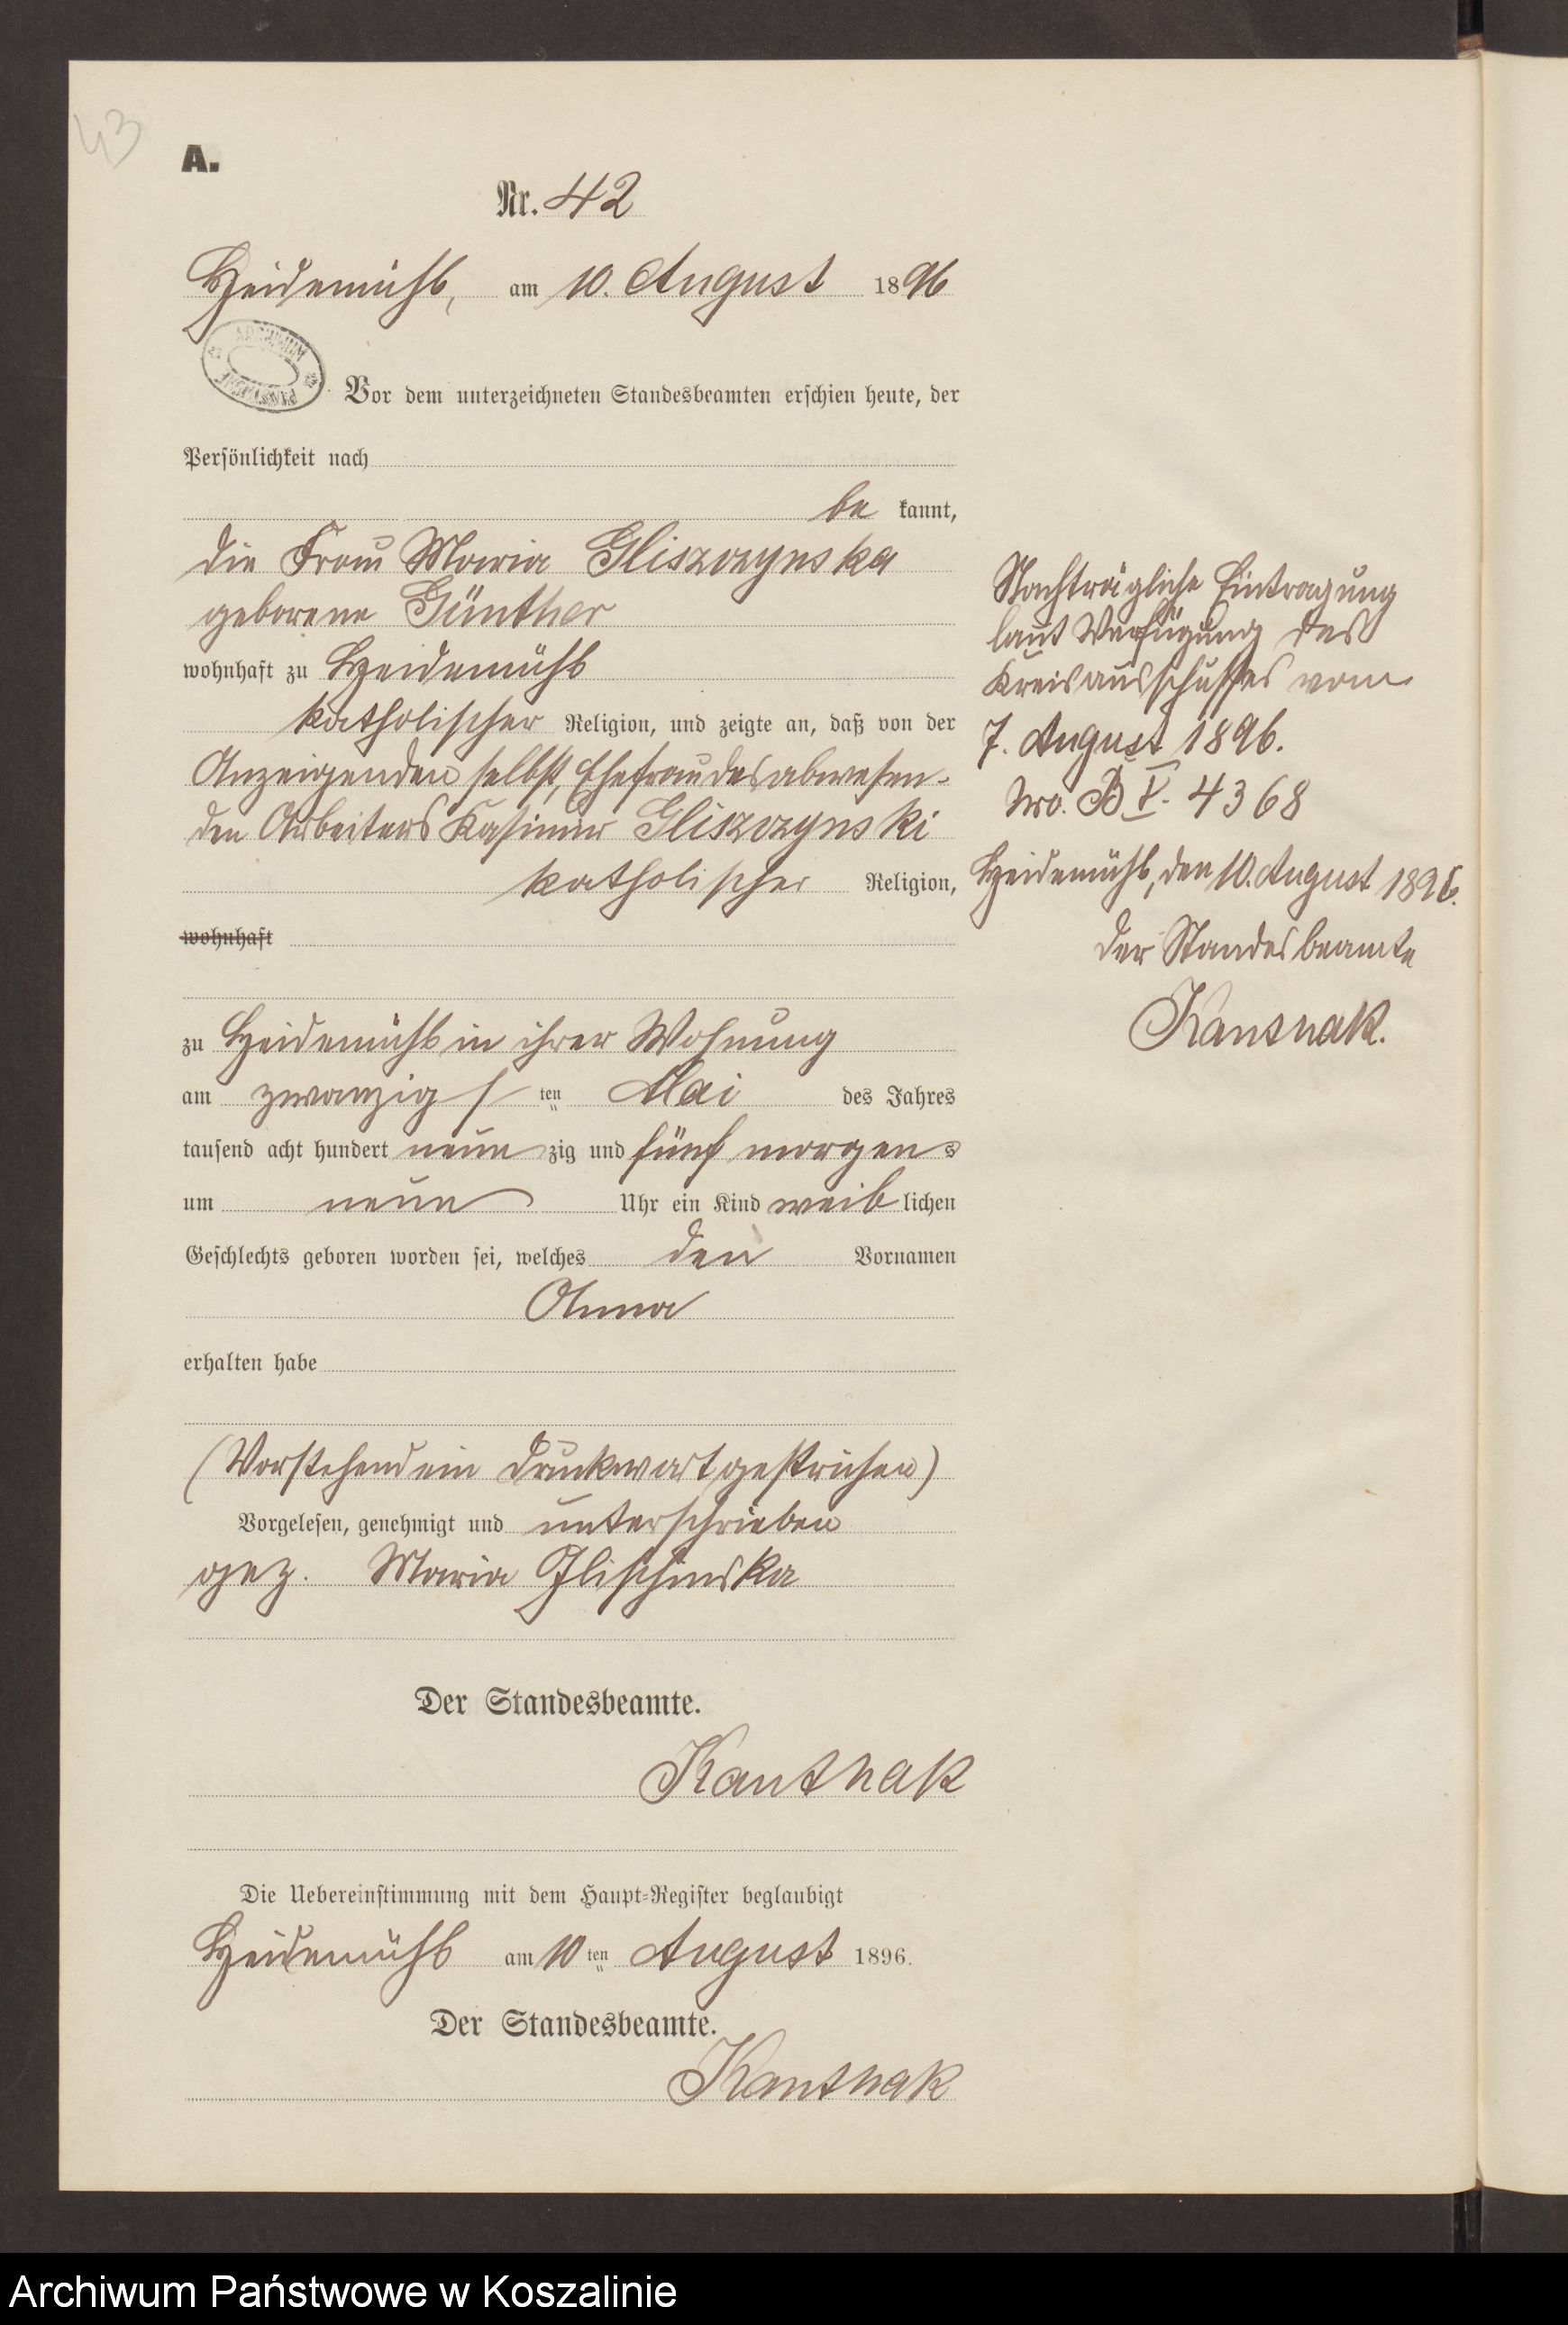 43
A.
Nr. 42
Heidemühl, am 10. August 1896
ARCHIWUM PAŃSTWOWE
Vor dem unterzeichneten Standesbeamten erschien heute, der
Persönlichkeit nach
be kannt,
die Frau Maria Gliszczynska
geborene Günther
wohnhaft zu Heidemühl
katholischer Religion, und zeigte an, daß von der
Anzeigenden selbst, Ehefrau des abwesen-
den Arbeiters Kasimir Gliszczynski
katholischer Religion,
wohnhaft
zu Heidemühl in ihrer Wohnung
am zwanzigsten Mai des Jahres
tausend acht hundert neunzig und fünf morgens
um neun Uhr ein Kind weiblichen
Geschlechts geboren worden sei, welches den Vornamen
Anna
erhalten habe
(Vorstehend ein Druckwort gestrichen)
Vorgelesen, genehmigt und unterschrieben
gez. Maria Glischinska
Der Standesbeamte.
Kantnak
Die Uebereinstimmung mit dem Haupt-Register beglaubigt
Heidemühl am 10ten August 1896.
Der Standesbeamte.
Kantnak
Nachträgliche Eintragung
laut Verfügung des
Kreisausschusses vom
7. August 1896.
Nro. B V. 4368
Heidemühl, den 10. August 1896.
Der Standesbeamte
Kantnak.
Archiwum Państwowe w Koszalinie